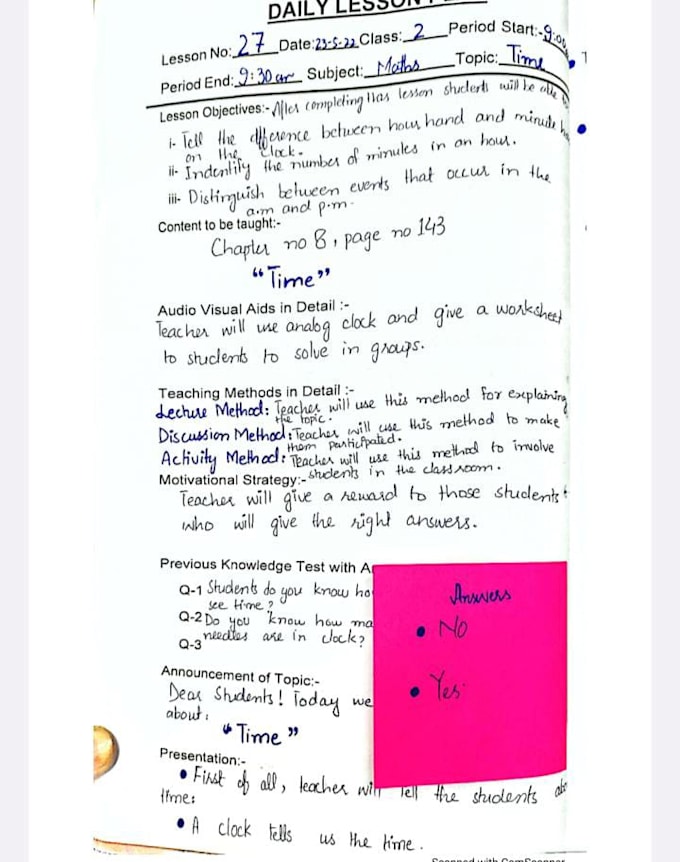 DAILY LESSON
Lesson No: 27 Date: 23-5-22 Class: 2 Period Start:-
Period End: 9:30 am Subject: Maths Topic: Time
Lesson Objectives:- After completing this lesson students will be able
i- Tell the difference between hour hand and minute
on the clock.
ii- Indentify the number of minutes in an hour.
iii- Distinguish between events that occur in the
a.m and p.m.
Content to be taught:-
Chapter no 8, page no 143
"Time"
Audio Visual Aids in Detail :-
Teacher will use analog clock and give a worksheet
to students to solve in groups.
Teaching Methods in Detail :-
Lecture Method: Teacher will use this method for explaining
the topic.
Discussion Method: Teacher will use this method to make
them participated.
Activity Method: Teacher will use this method to involve
Motivational Strategy:- students in the classroom.
Teacher will give a reward to those students
who will give the right answers.
Previous Knowledge Test with A
Q-1 Students do you know ho
see time?
Q-2 Do you know how ma
needles are in clock?
Q-3
Answers
• No
• Yes
Announcement of Topic:-
Dear Students! Today we
about:
"Time"
Presentation:-
• First of all, teacher will tell the students
time:
• A clock tells us the time.